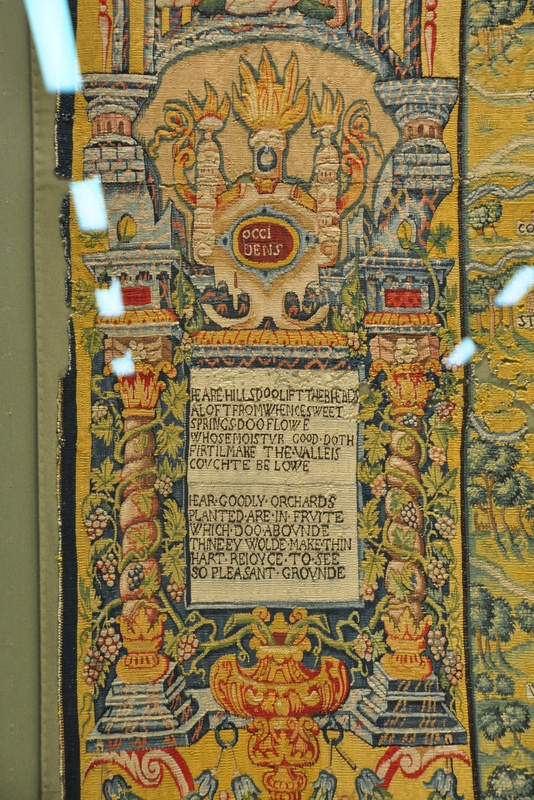 OCCI
DENS
CO
ST
HEARE HILLS DOO LIFT THER HEADS
ALOFT FROM WHENCE SWEET
SPRINGS DOO FLOWE
WHOSE MOISTVR GOOD DOTH
FIRTIL MAKE THE VALLEIS
COVCHTE BE LOWE
HEAR·GOODLY·ORCHARDS
PLANTED·ARE·IN·FRVITE
WHICH·DOO·ABOVNDE
THNE EY WOLDE·MAKE THIN
HART·REIOYCE·TO·SEE
SO PLEASANT·GROVNDE